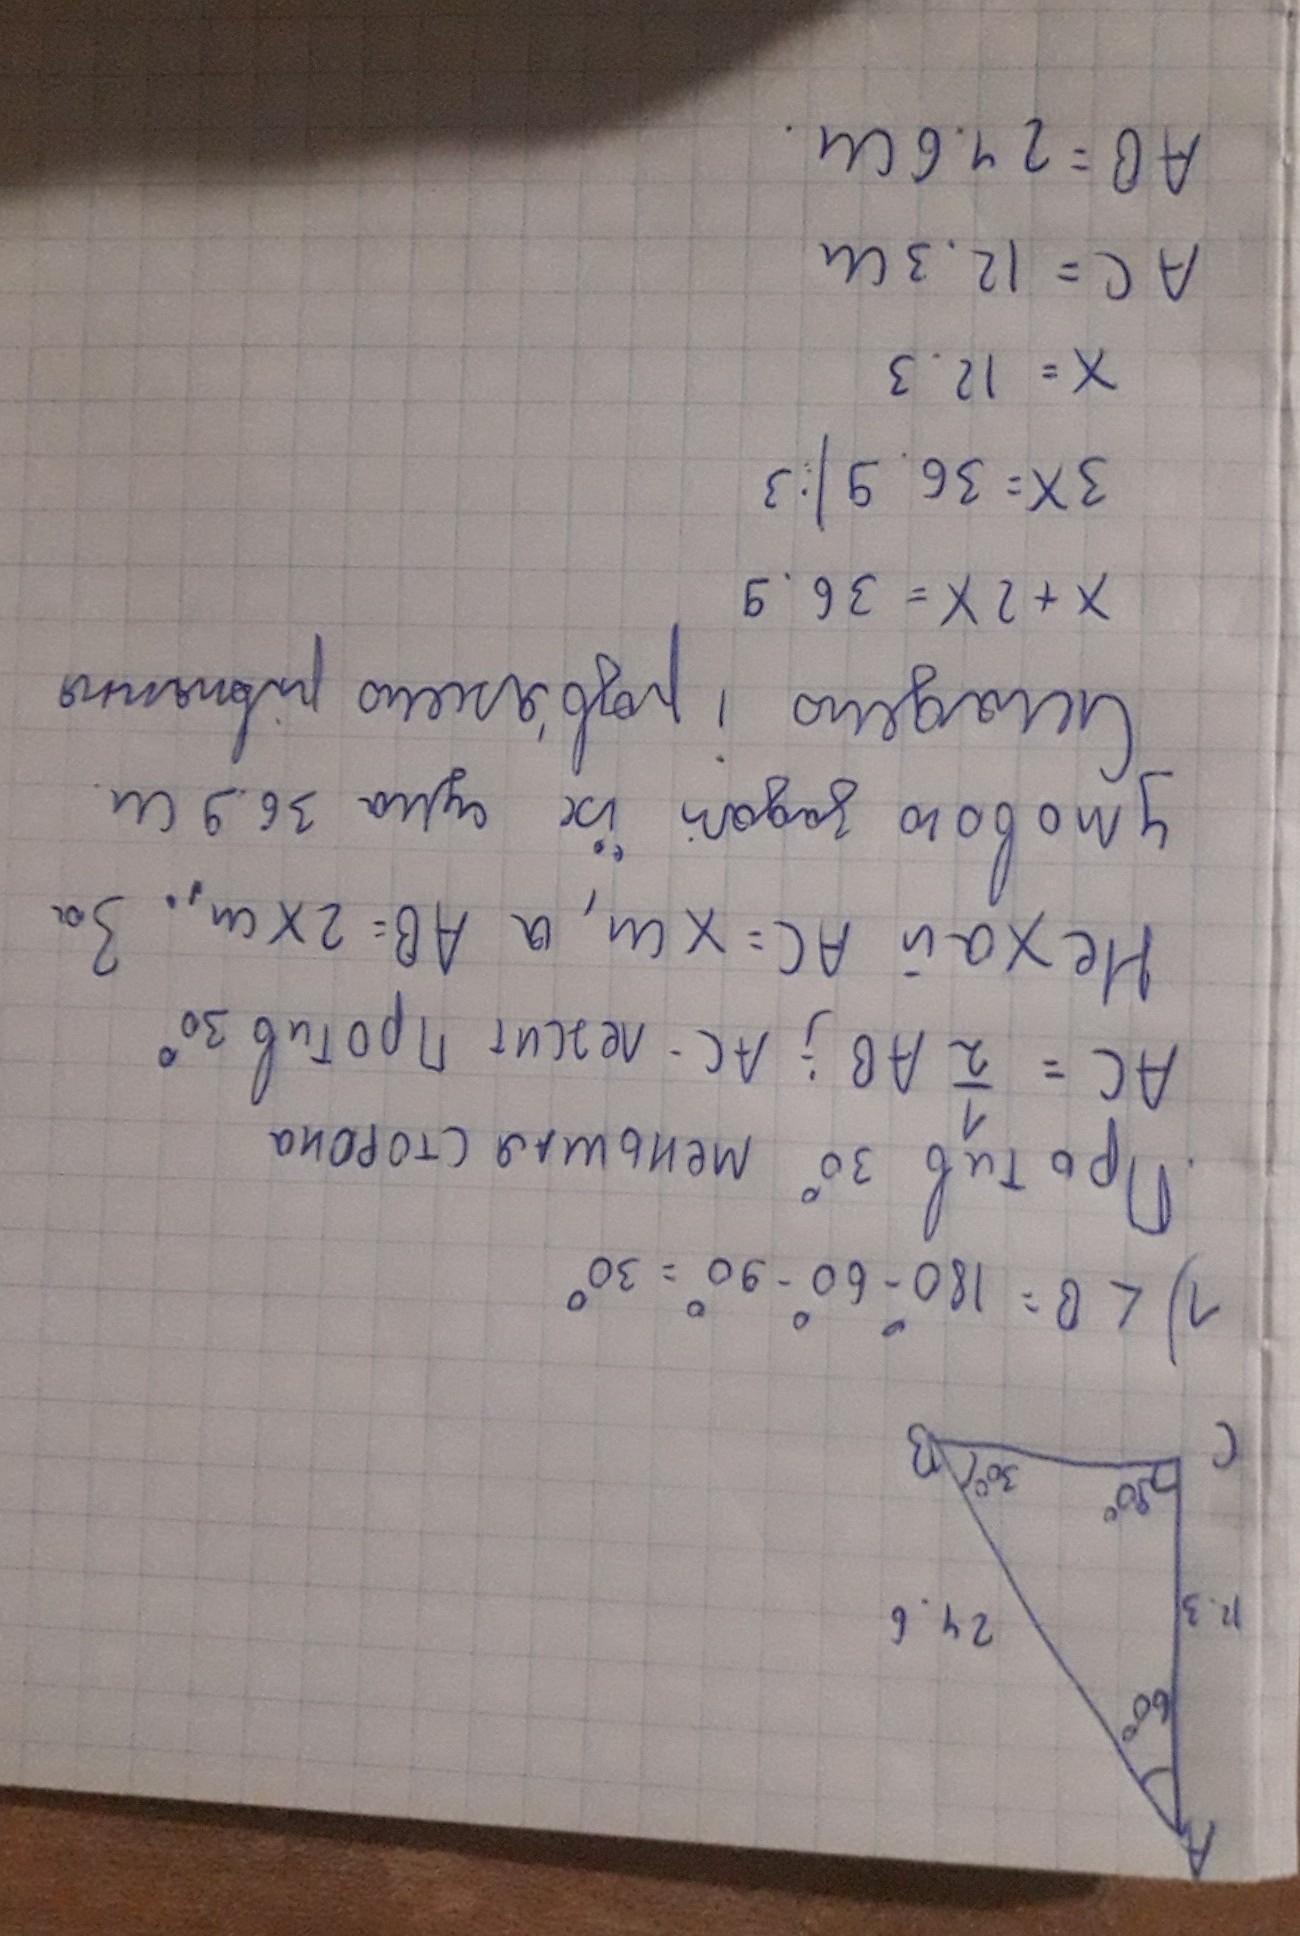 A
60°
12.3
24.6
90°
30°
C
B
1) ∠B = 180° - 60° - 90° = 30°
Против 30° меньшая сторона
AC = 1/2 AB; AC - лежит против 30°
Нехай AC = x см, а AB = 2x см,. За
умовою задачі їх сума 36.9 см.
Складемо і розв'яжемо рівняння
x + 2x = 36.9
3x = 36.9 |:3
x = 12.3
AC = 12.3 см
AB = 24.6 см.